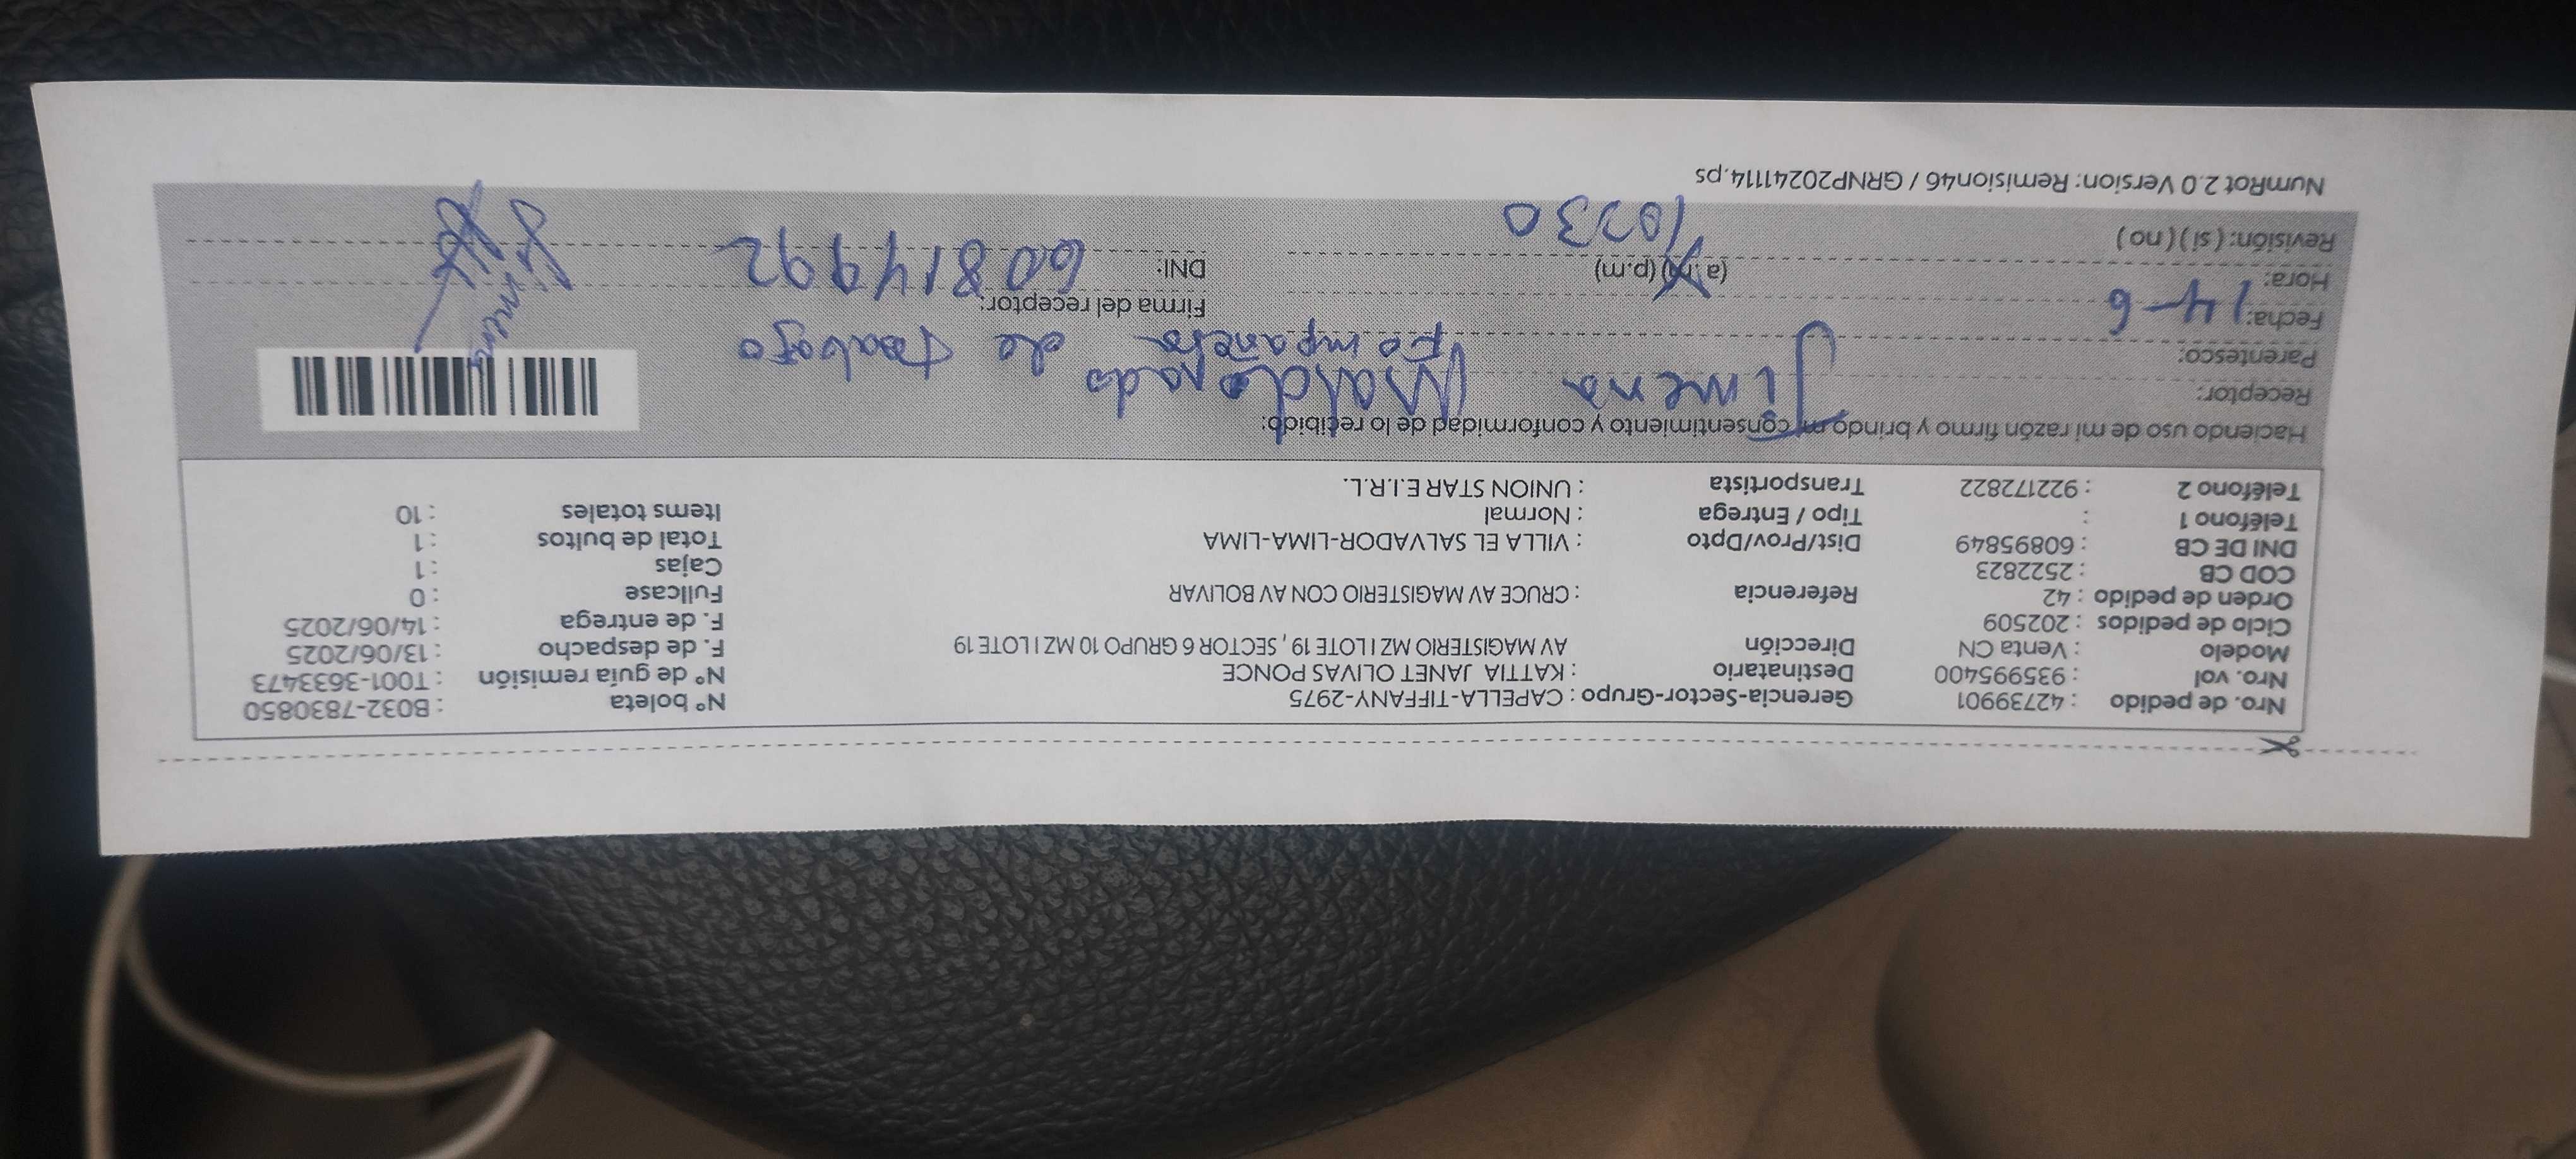 Nro. de pedido : 42739901 Gerencia-Sector-Grupo : CAPELLA-TIFFANY-2975 N° boleta : B032-7830850
Nro. vol : 935995400 Destinatario : KATTIA JANET OLIVAS PONCE N° de guía remisión : T001-3633473
Modelo : Venta CN Dirección AV MAGISTERIO MZ I LOTE 19 , SECTOR 6 GRUPO 10 MZ I LOTE 19 F. de despacho : 13/06/2025
Ciclo de pedidos : 202509 F. de entrega : 14/06/2025
Orden de pedido : 42 Referencia : CRUCE AV MAGISTERIO CON AV BOLIVAR Fullcase : 0
COD CB : 2522823 Cajas : 1
DNI DE CB : 60895849 Dist/Prov/Dpto : VILLA EL SALVADOR-LIMA-LIMA Total de bultos : 1
Teléfono 1 : Tipo / Entrega : Normal Items totales : 10
Teléfono 2 : 922172822 Transportista : UNION STAR E.I.R.L.
Haciendo uso de mi razón firmo y brindo mi consentimiento y conformidad de lo recibido:
Receptor: Jimena Maldonado
Parentesco: Compañera de trabajo
Fecha: 14-6 Firma del receptor: Jimena
Hora: (a.m) (p.m) DNI: 60814992
Revisión: ( si ) ( no ) 10:30
NumRot 2.0 Version: Remision46 / GRNP20241114.ps